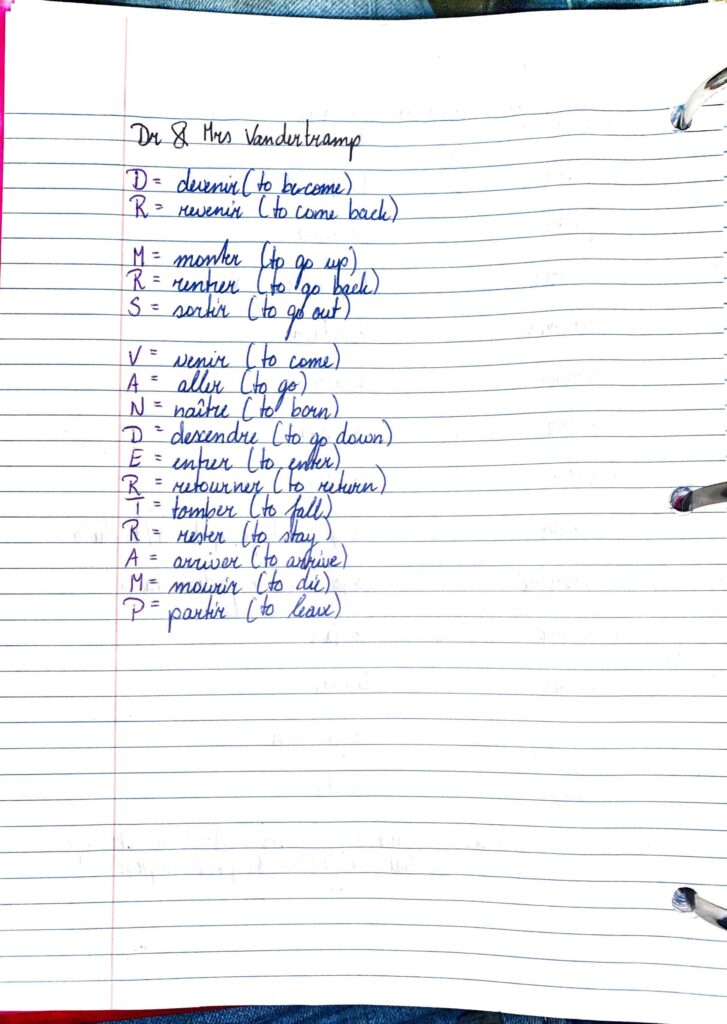 Dr & Mrs Vandertramp
D = devenir (to become)
R = revenir (to come back)
M = monter (to go up)
R = rentrer (to go back)
S = sortir (to go out)
V = venir (to come)
A = aller (to go)
N = naître (to born)
D = descendre (to go down)
E = entrer (to enter)
R = retourner (to return)
T = tomber (to fall)
R = rester (to stay)
A = arriver (to arrive)
M = mourir (to die)
P = partir (to leave)